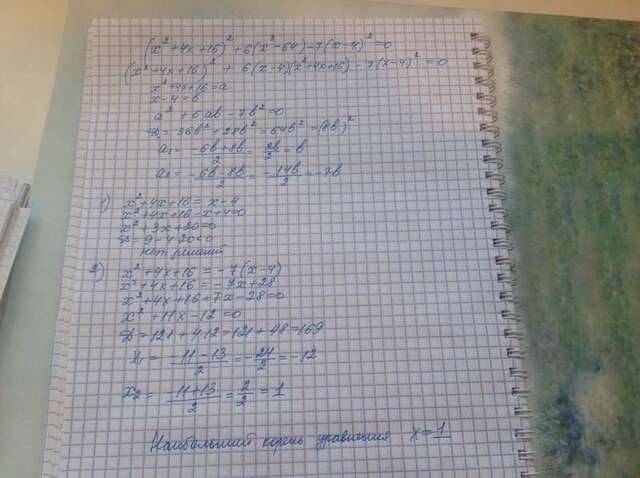 (x² + 4x + 16)² + 6(x³ - 64) - 7(x - 4)² = 0
(x² + 4x + 16)² + 6(x - 4)(x² + 4x + 16) - 7(x - 4)² = 0
x² + 4x + 16 = a
x - 4 = b
a² + 6ab - 7b² = 0
D = 36b² + 28b² = 64b² = (8b)²
a₁ = (-6b + 8b)/2 = 2b/2 = b
a₂ = (-6b - 8b)/2 = -14b/2 = -7b
1) x² + 4x + 16 = x - 4
x² + 4x + 16 - x + 4 = 0
x² + 3x + 20 = 0
D = 9 - 4·20 < 0
нет решений
2) x² + 4x + 16 = -7(x - 4)
x² + 4x + 16 = -7x + 28
x² + 4x + 16 + 7x - 28 = 0
x² + 11x - 12 = 0
D = 121 + 4·12 = 121 + 48 = 169
x₁ = (-11 - 13)/2 = -24/2 = -12
x₂ = (-11 + 13)/2 = 2/2 = 1
Наибольший корень уравнения x = 1